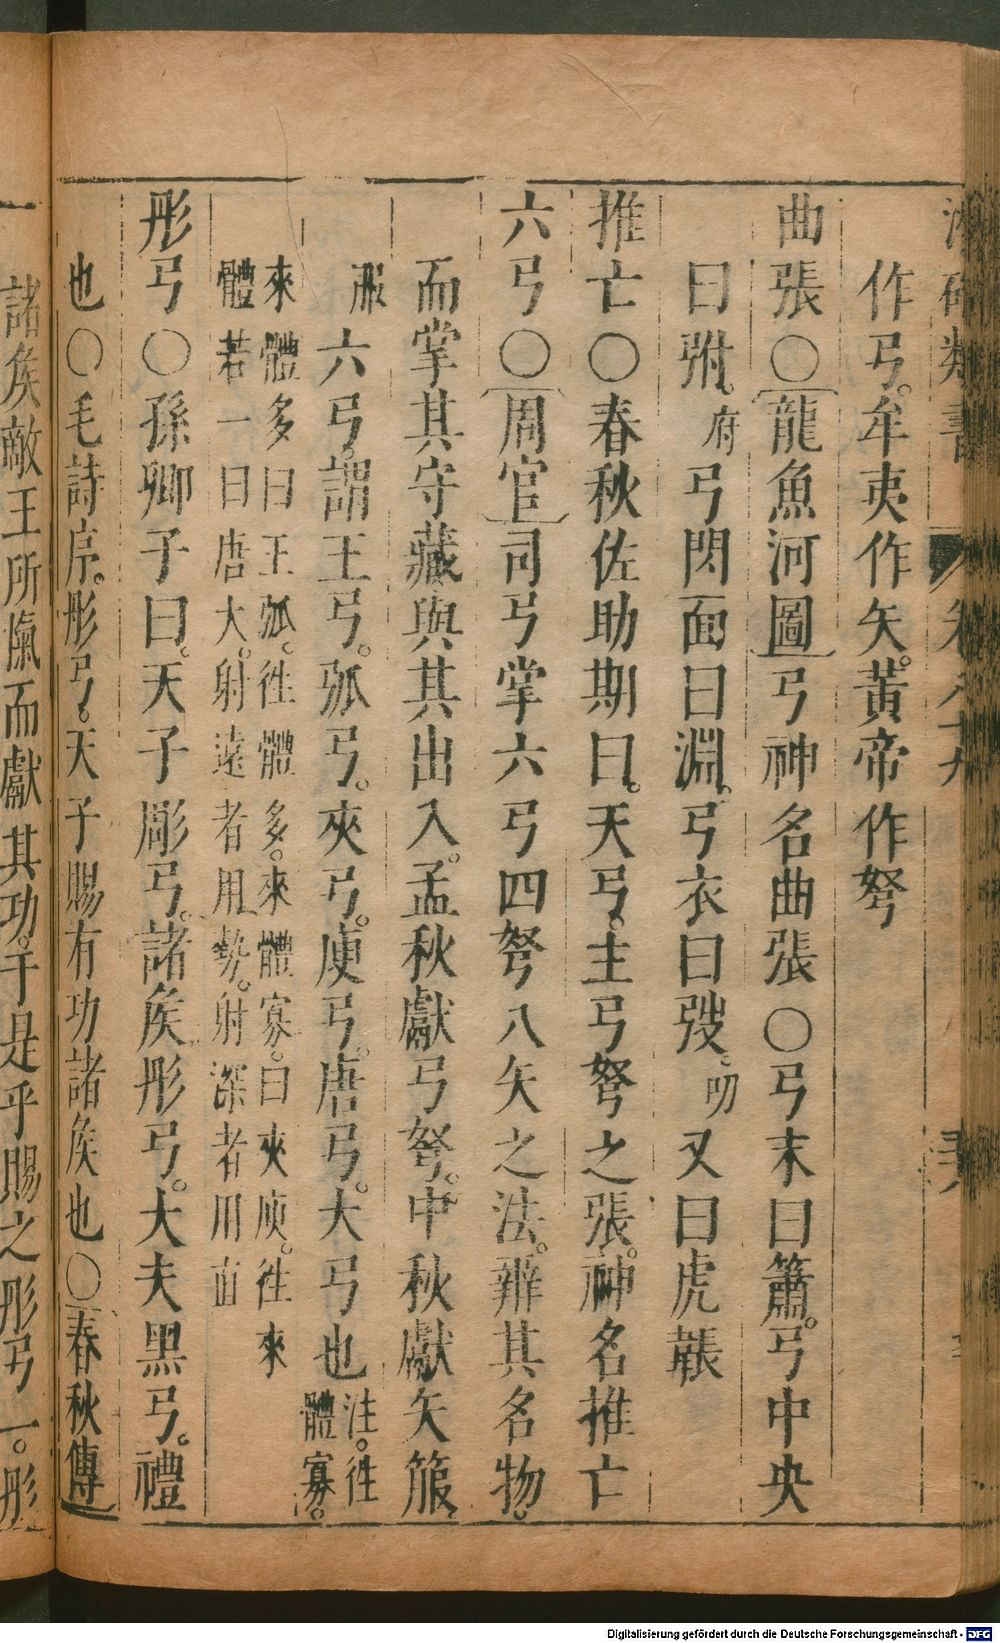 作弓。牟夷作矢。黃帝作弩
曲張○龍魚河圖弓神名曲張○弓末曰簫。弓中央
曰弣。府弓閃面曰淵。弓衣曰弢。叨又曰虎韔
推亡○春秋佐助期曰。天弓。主弓弩之張。神名推亡
六弓○周官司弓掌六弓四弩八矢之法。辨其名物。
而掌其守藏與其出入。孟秋獻弓弩。中秋獻矢箙。
服六弓。謂王弓。弧弓。夾弓。庾弓。唐弓。大弓也注。徃體寡。
來體多曰王弧。徃體多。來體寡。曰夾庾。徃來
體若一曰唐大。射遠者用勢。射深者用直
彤弓○孫卿子曰。天子彫弓。諸矦彤弓。大夫黑弓。禮
也○毛詩序。彤弓。天子賜有功諸矦也○春秋傳
諸矦敵王所愾而獻其功。于是乎賜之彤弓一。彤
Digitalisierung gefördert durch die Deutsche Forschungsgemeinschaft - DFG